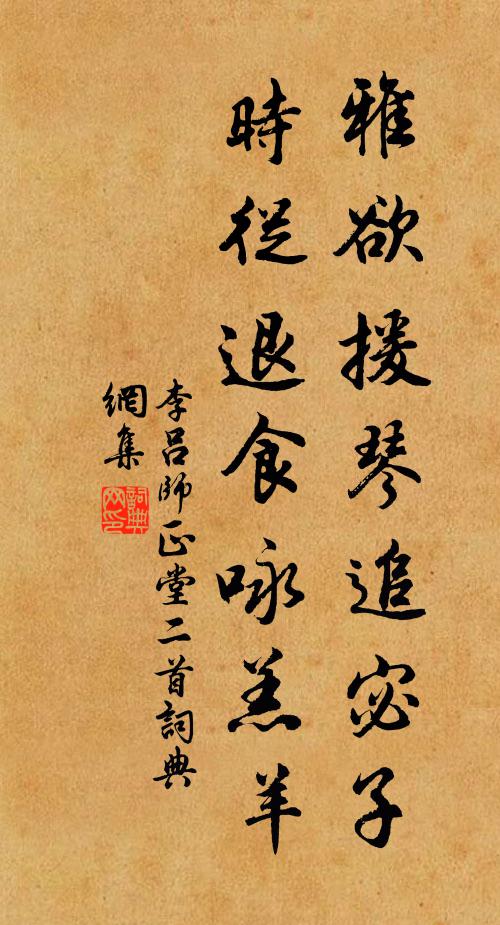 雅欲援琴追宓子
時從退食咏羔羊
李呂師正堂二首詞典
網集
詞典網印